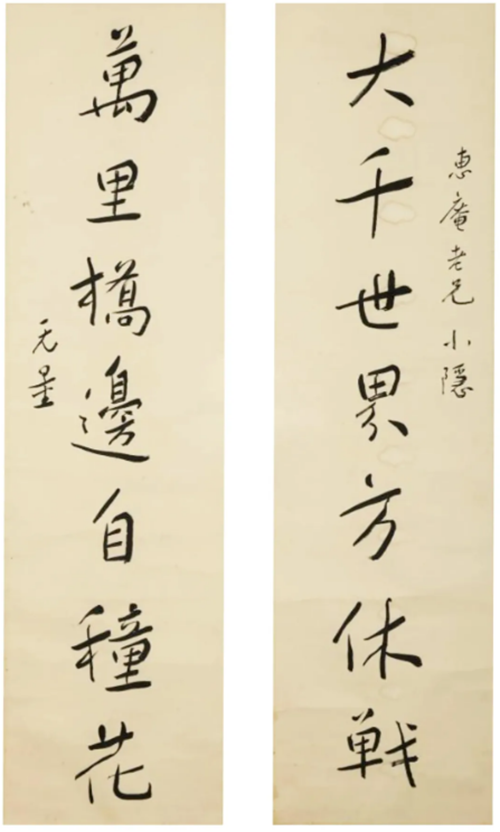 惠庵老兄小隱
大千世界方休戦
萬里橋邊自穜花
无量